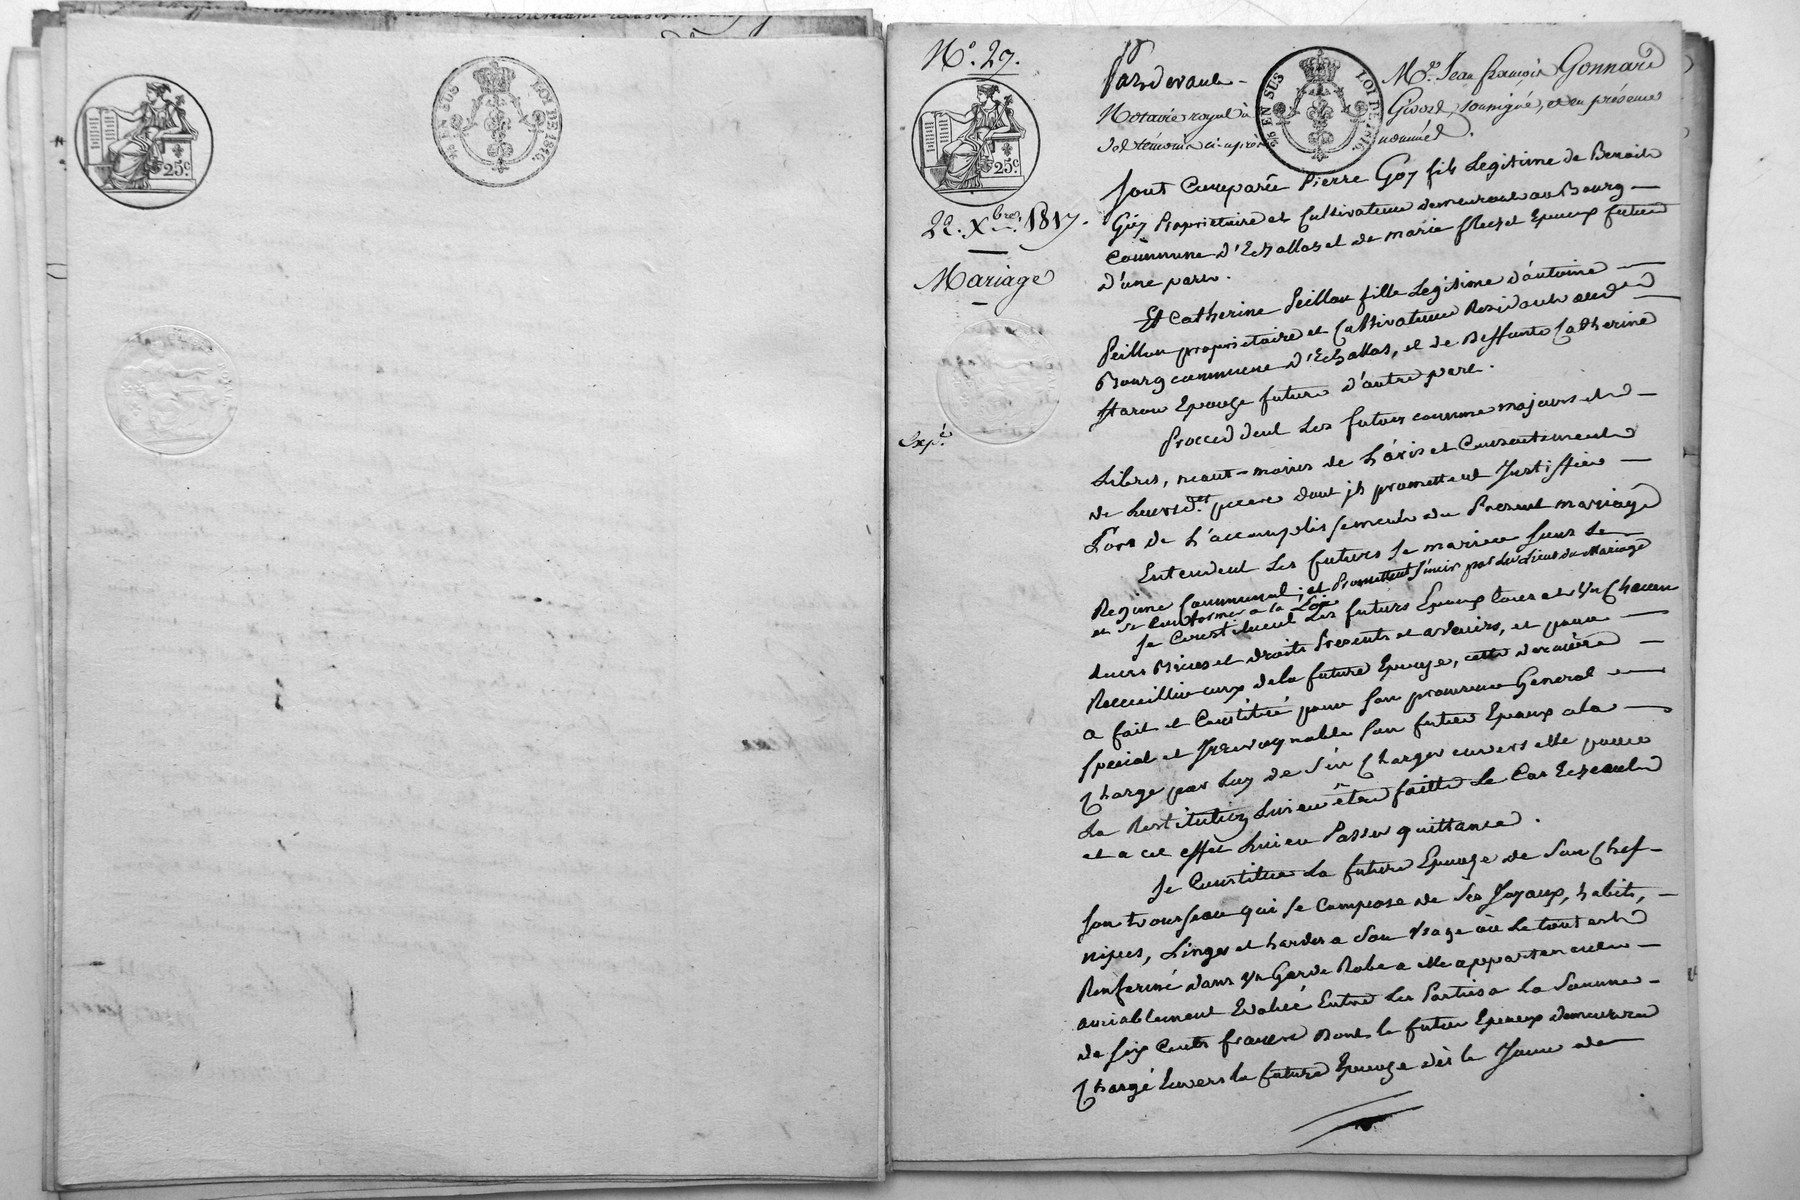 25.c
EN SUS LOI DE 1816.
N.º 27.
25.c
22. Xbre 1817.
Mariage
Exp.é
EN SUS LOI DE 1816.
Pardevant Me. Jean françois Gonnard
Notaire royal à Givord, soussigné, et en présence
des témoins ci après nommés.
Sont Comparus Pierre Goy fils Legitime de Benoit
Goy Proprietaire et Cultivateur demeurant au Bourg
Commune d'Echallas et de marie flechet Epoux futur
d'une part.
Et Catherine Peillon fille Legitime d'antoine
Peillon proprietaire et Cultivateur Residant aud
Bourg commune d'Echallas, et de deffunte Catherine
Epouze future d'autre part.
Proceddent Les futurs comme majeurs et
Libres, neant-moins de L'avis et Consentement
de Leursdts. peres dont ils promettent Justiffier
Lors de L'accomplissement du Present mariage
Entendent Les futurs se marier sous Le
Regime Communal; et Promettent s'unir par Les Liens du Mariage
et se Conformer a la Loi
Se Constituent Les futurs Epoux tous et Un Chacun
Leurs Biens et droits Presents et advenirs, et pour
Recueillir ceux de la future Epouze, cette derniere
a fait et Constitué pour son procureur General
special et Irrevoquable son futur Epoux a la
Charge par Luy de s'en Charger envers elle pour
La Restitution Lui en être faitte Le Cas Echeant
et a cet effet Lui en Passer quittance.
Se Constitue La future Epouze de son Chef
son trousseau qui se Compose de ses Joyaux, habits,
nipes, Linges et hardes a son Usage où Le tout est
Renfermé dans Un Garde Robe a elle appartenant
amiablement Evalué Entre Les Parties a La Somme
de six Cents francs Dont le futur Epoux demeurera
Chargé Envers la future Epouze dès le Jour de